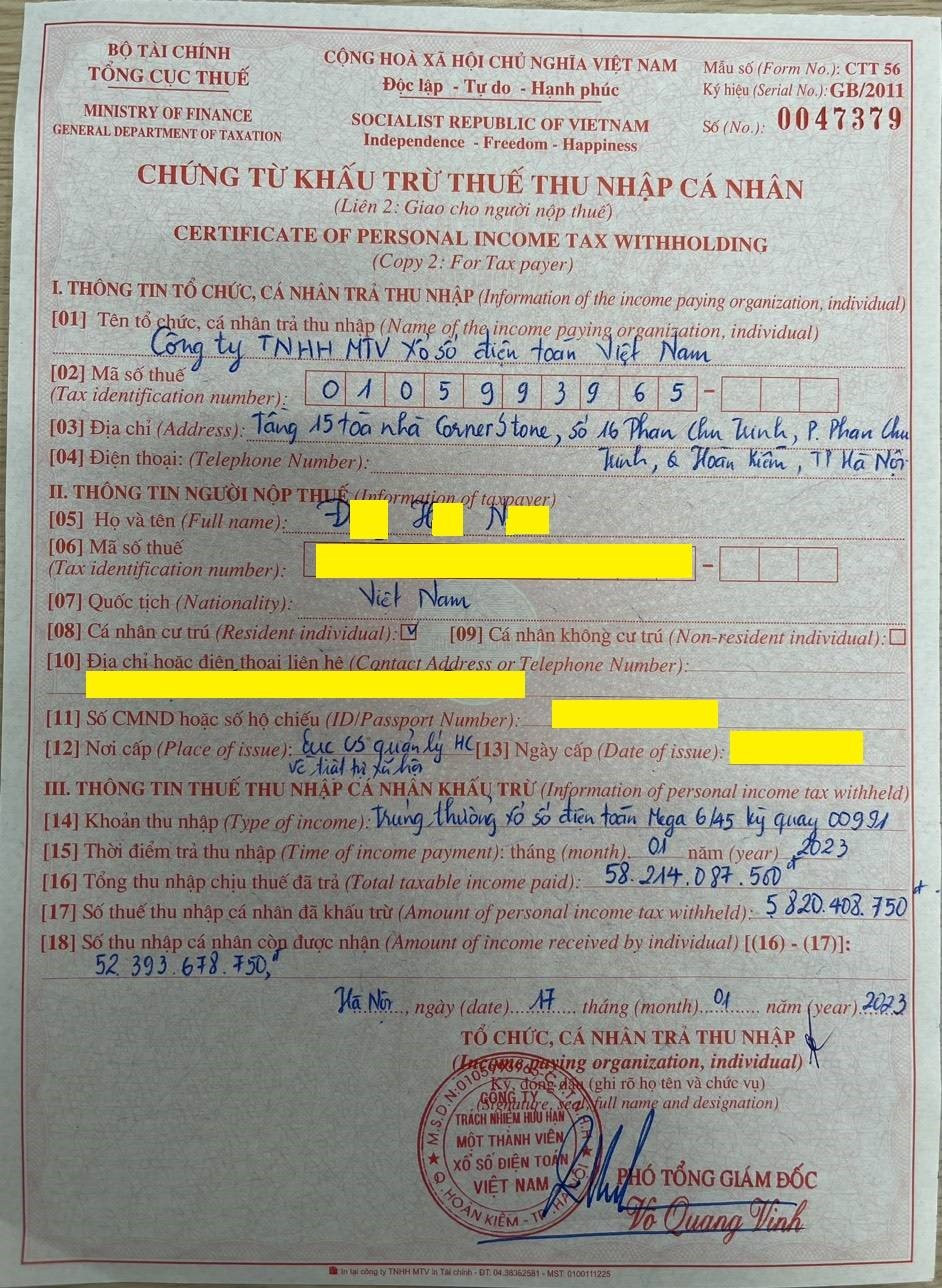 BỘ TÀI CHÍNH
TỔNG CỤC THUẾ
MINISTRY OF FINANCE
GENERAL DEPARTMENT OF TAXATION
CỘNG HOÀ XÃ HỘI CHỦ NGHĨA VIỆT NAM
Độc lập - Tự do - Hạnh phúc
SOCIALIST REPUBLIC OF VIETNAM
Independence - Freedom - Happiness
Mẫu số (Form No.): CTT 56
Ký hiệu (Serial No.): GB/2011
Số (No.): 0047379
CHỨNG TỪ KHẤU TRỪ THUẾ THU NHẬP CÁ NHÂN
(Liên 2: Giao cho người nộp thuế)
CERTIFICATE OF PERSONAL INCOME TAX WITHHOLDING
(Copy 2: For Tax payer)
I. THÔNG TIN TỔ CHỨC, CÁ NHÂN TRẢ THU NHẬP (Information of the income paying organization, individual)
[01] Tên tổ chức, cá nhân trả thu nhập (Name of the income paying organization, individual)
Công ty TNHH MTV Xổ số điện toán Việt Nam
[02] Mã số thuế
(Tax identification number): 0105993965 -
[03] Địa chỉ (Address): Tầng 15 toà nhà CornerStone, số 16 Phan Chu Trinh, P. Phan Chu
[04] Điện thoại: (Telephone Number): Trinh, Q Hoàn Kiếm, TP Hà Nội
II. THÔNG TIN NGƯỜI NỘP THUẾ (Information of taxpayer)
[05] Họ và tên (Full name): Đ H N
[06] Mã số thuế
(Tax identification number): -
[07] Quốc tịch (Nationality): Việt Nam
[08] Cá nhân cư trú (Resident individual): [09] Cá nhân không cư trú (Non-resident individual):
[10] Địa chỉ hoặc điện thoại liên hệ (Contact Address or Telephone Number):
[11] Số CMND hoặc số hộ chiếu (ID/Passport Number):
[12] Nơi cấp (Place of issue): Cục CS quản lý HC [13] Ngày cấp (Date of issue):
về trật tự xã hội
III. THÔNG TIN THUẾ THU NHẬP CÁ NHÂN KHẤU TRỪ (Information of personal income tax withheld)
[14] Khoản thu nhập (Type of income): Trúng thưởng xổ số điện toán Mega 6/45 kỳ quay 00991
[15] Thời điểm trả thu nhập (Time of income payment): tháng (month) 01 năm (year) 2023
[16] Tổng thu nhập chịu thuế đã trả (Total taxable income paid): 58.214.087.500đ
[17] Số thuế thu nhập cá nhân đã khấu trừ (Amount of personal income tax withheld): 5 820.408.750đ
[18] Số thu nhập cá nhân còn được nhận (Amount of income received by individual) [(16) - (17)]:
52 393.678.750,đ
Hà Nội, ngày (date) 17 tháng (month) 01 năm (year) 2023
TỔ CHỨC, CÁ NHÂN TRẢ THU NHẬP
(Income paying organization, individual)
Ký, đóng dấu (ghi rõ họ tên và chức vụ)
(Signature, seal, full name and designation)
M.S.D.N:0105993965-C.T.T.N.H.H
CÔNG TY
TRÁCH NHIỆM HỮU HẠN
MỘT THÀNH VIÊN
XỔ SỐ ĐIỆN TOÁN
VIỆT NAM
Q. HOÀN KIẾM - TP. HÀ NỘI
PHÓ TỔNG GIÁM ĐỐC
Võ Quang Vinh
In tại công ty TNHH MTV In Tài chính - ĐT: 04.38362581 - MST: 0100111225